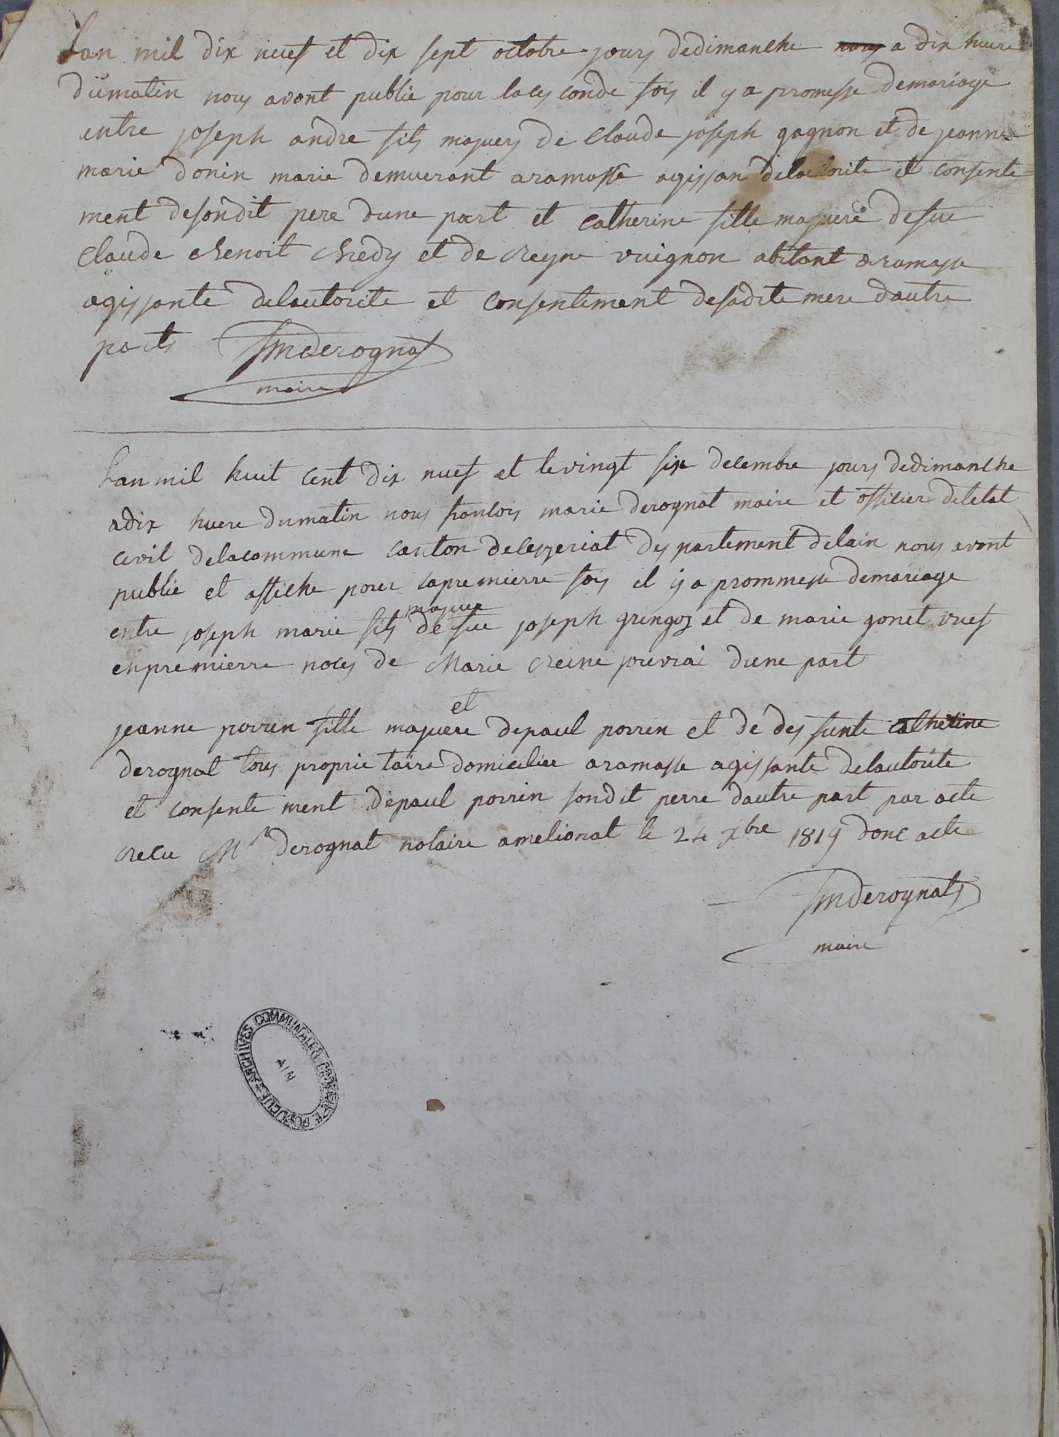 Lan mil dix neuf et dix sept octobre jours dedimanche nous a dix huere
dumatin nous avont publié pour laces conde fois il y a promesse demariage
entre joseph andre fils majuers de Claude joseph gagnon et de jeanne
marie donin marie demuerant aramasse agissan delautorite et consente
ment desondit pere dune part et Catherine fille majuere defue
Claude Benoit et de Reyne vuignon abitant aramasse
agissante delautorite et consentement desadite mere dautre
parts fmderognat
maire
Lan mil huit cent dix nuef et levingt six decembre jours dedimanche
adix huere dumatin nous francois marie derognat maire et officier deletat
civil delacommune canton deceyzeriat departement delain nous avont
publié et affiche pour sapremierre fois il y a prommesse demariage
entre joseph marie fils majeur de feu joseph gringoz et de marie gonet vuef
enpremierre noces de Marie Reine jouvrai dune part
et
jeanne porrin fille majuere depaul porrin et de des funte catherine
derognat tous proprie taire domiciliee aramasse agissante delautorite
et consente ment depaul porrin sondit perre dautre part par acte
recu Mr derognat notaire amelionat le 24 xbre 1819 donc acte
fmderognat
maire
ARCHIVES COMMUNALES
AIN